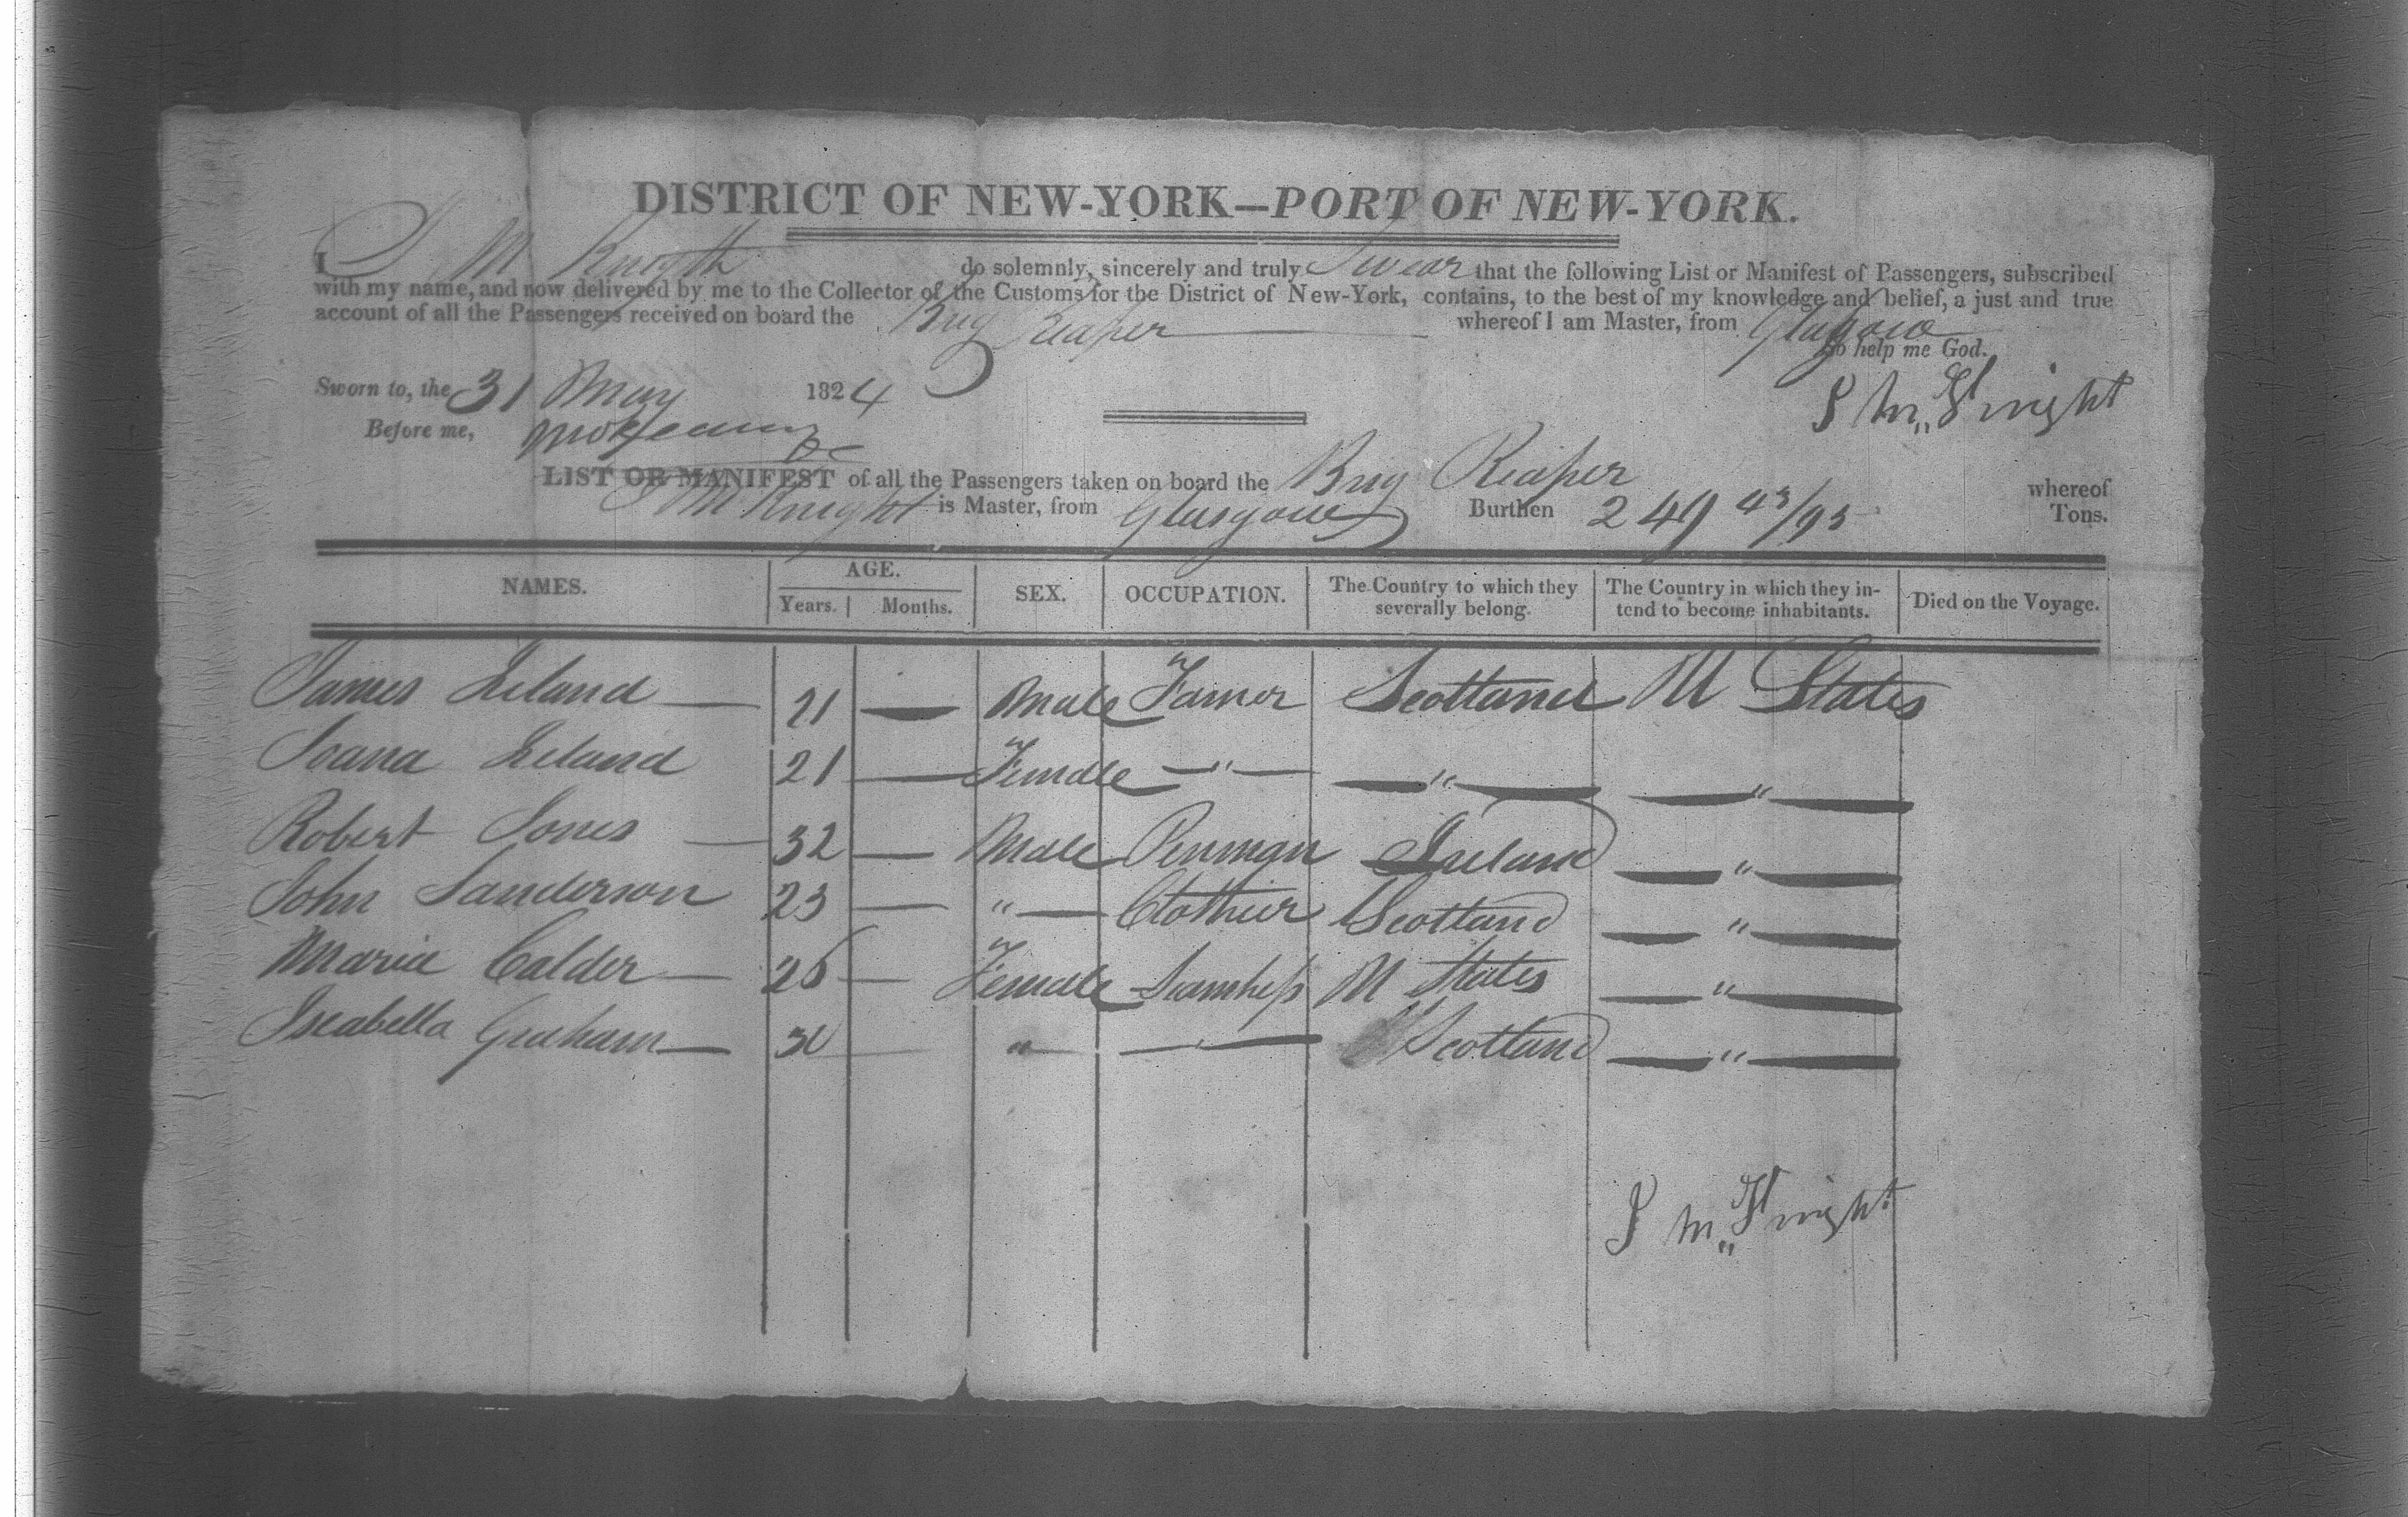 DISTRICT OF NEW-YORK—PORT OF NEW-YORK.
I J M Knight do solemnly, sincerely and truly Swear that the following List or Manifest of Passengers, subscribed
with my name, and now delivered by me to the Collector of the Customs for the District of New-York, contains, to the best of my knowledge and belief, a just and true
account of all the Passengers received on board the Brig Reaper whereof I am Master, from Glasgow
So help me God.
Sworn to, the 31 May 1824 J Mc Knight
Before me,
LIST OR MANIFEST of all the Passengers taken on board the Brig Reaper whereof
J M Knight is Master, from Glasgow Burthen 249 43/95 Tons.
NAMES. AGE. Years. Months. SEX. OCCUPATION. The Country to which they severally belong. The Country in which they intend to become inhabitants. Died on the Voyage.
James Leland — 21 — Male Farmer Scotland U States
Joana Leland 21 — Female — " — — " — — " —
Robert Jones — 32 — Male Penman Ireland — " —
John Sanderson 23 — " — Clothier Scotland — " —
Maria Calder — 26 — Female U States — " —
Iseabella Graham — 30 — " — — Scotland — " —
J Mc Knight